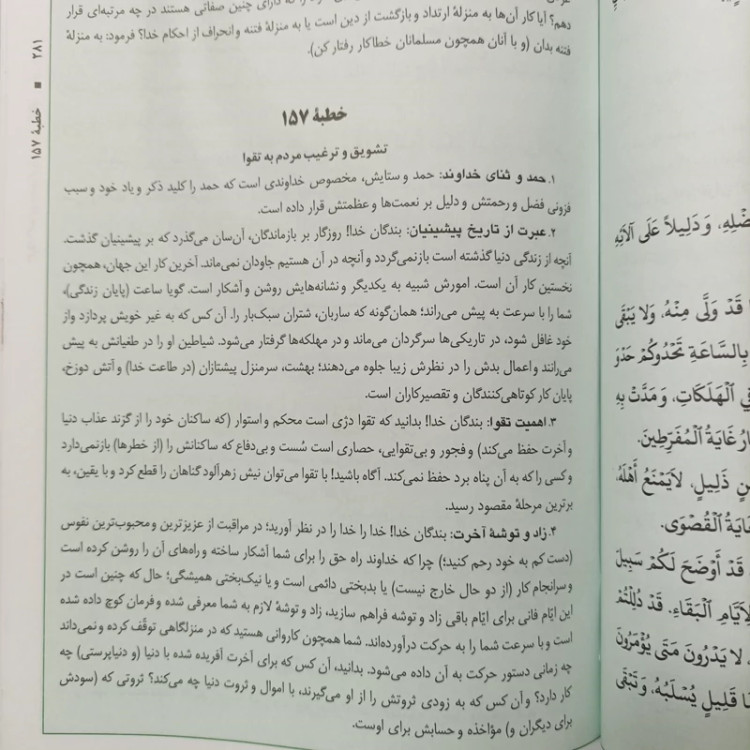 دهم؟ آیا کار آن‌ها به منزلهٔ ارتداد و بازگشت از دین است یا به منزلهٔ فتنه و انحراف از احکام خدا؟ فرمود: به منزلهٔ
فتنه بدان (و با آنان همچون مسلمانان خطاکار رفتار کن).
خطبهٔ ۱۵۷
تشویق و ترغیب مردم به تقوا
۱. حمد و ثنای خداوند: حمد و ستایش، مخصوص خداوندی است که حمد را کلید ذکر و یاد خود و سبب
فزونی فضل و رحمتش و دلیل بر نعمت‌ها و عظمتش قرار داده است.
۲. عبرت از تاریخ پیشینیان: بندگان خدا! روزگار بر بازماندگان، آن‌سان می‌گذرد که بر پیشینیان گذشت.
آنچه از زندگی دنیا گذشته است بازنمی‌گردد و آنچه در آن هستیم جاودان نمی‌ماند. آخرین کار این جهان، همچون
نخستین کار آن است. امورش شبیه به یکدیگر و نشانه‌هایش روشن و آشکار است. گویا ساعت (پایان زندگی)،
شما را با سرعت به پیش می‌راند؛ همان‌گونه که ساربان، شتران سبک‌بار را. آن کس که به غیر خویش پردازد و از
خود غافل شود، در تاریکی‌ها سرگردان می‌ماند و در مهلکه‌ها گرفتار می‌شود. شیاطین او را در طغیانش به پیش
می‌رانند و اعمال بدش را در نظرش زیبا جلوه می‌دهند؛ بهشت، سرمنزل پیشتازان (در طاعت خدا) و آتش دوزخ،
پایان کار کوتاهی‌کنندگان و تقصیرکاران است.
۳. اهمیت تقوا: بندگان خدا! بدانید که تقوا دژی است محکم و استوار (که ساکنان خود را از گزند عذاب دنیا
و آخرت حفظ می‌کند) و فجور و بی‌تقوایی، حصاری است سُست و بی‌دفاع که ساکنانش را (از خطرها) بازنمی‌دارد
و کسی را که به آن پناه برد حفظ نمی‌کند. آگاه باشید! با تقوا می‌توان نیش زهرآلود گناهان را قطع کرد و با یقین، به
برترین مرحلهٔ مقصود رسید.
۴. زاد و توشهٔ آخرت: بندگان خدا! خدا را خدا را در نظر آورید؛ در مراقبت از عزیزترین و محبوب‌ترین نفوس
(دست کم به خود رحم کنید؛) چرا که خداوند راه حق را برای شما آشکار ساخته و راه‌های آن را روشن کرده است
و سرانجام کار (از دو حال خارج نیست) یا بدبختی دائمی است و یا نیک‌بختی همیشگی؛ حال که چنین است در
این ایّام فانی برای ایّام باقی زاد و توشه فراهم سازید، زاد و توشهٔ لازم به شما معرفی شده و فرمان کوچ داده شده
است و با سرعت شما را به حرکت درآورده‌اند. شما همچون کاروانی هستید که در منزلگاهی توقّف کرده و نمی‌داند
چه زمانی دستور حرکت به آن داده می‌شود. بدانید، آن کس که برای آخرت آفریده شده با دنیا (و دنیاپرستی) چه
کار دارد؟ و آن کس که به زودی ثروتش را از او می‌گیرند، با اموال و ثروت دنیا چه می‌کند؟ ثروتی که (سودش
برای دیگران و) مؤاخذه و حسابش برای اوست.
۲۸۱ ■ خطبهٔ ۱۵۷
وَ دَلِيلاً عَلَى آلَائِهِ
قَدْ وَلَّى مِنْهُ، وَلَا يَبْقَى
بِالسَّاعَةِ تَحْدُوكُمْ حَدْوَ
فِي الْهَلَكَاتِ، وَ مَدَّتْ بِهِ
غَايَةُ الْمُفَرِّطِينَ.
ذَلِيلٍ، لَايَمْنَعُ أَهْلَهُ،
الْقُصْوَى.
قَدْ أَوْضَحَ لَكُمْ سَبِيلَ
لِأَيَّامِ الْبَقَاءِ. قَدْ دُلِلْتُمْ
لَا يَدْرُونَ مَتَى يُؤْمَرُونَ
قَلِيلٍ يُسْلَبُهُ، وَ تَبْقَى